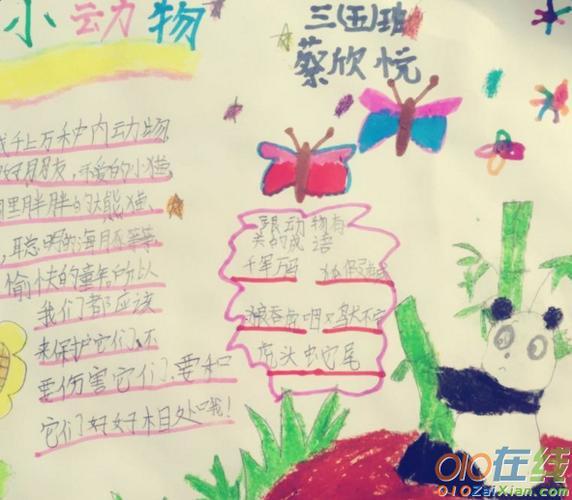 小动物
三(五)班
蔡欣悦
成千上万种内动物
好朋友,可爱的小猫
胖胖的大熊猫、
,聪明的海豚等等
愉快的童年所以
我们都应该
来保护它们,不
要伤害它们、要和
它们好好相处哦!
跟动物有
关的成语
千军万马 狐假虎威
狼吞虎咽 鸡犬不宁
虎头蛇尾
010在线
010ZaiXian.com